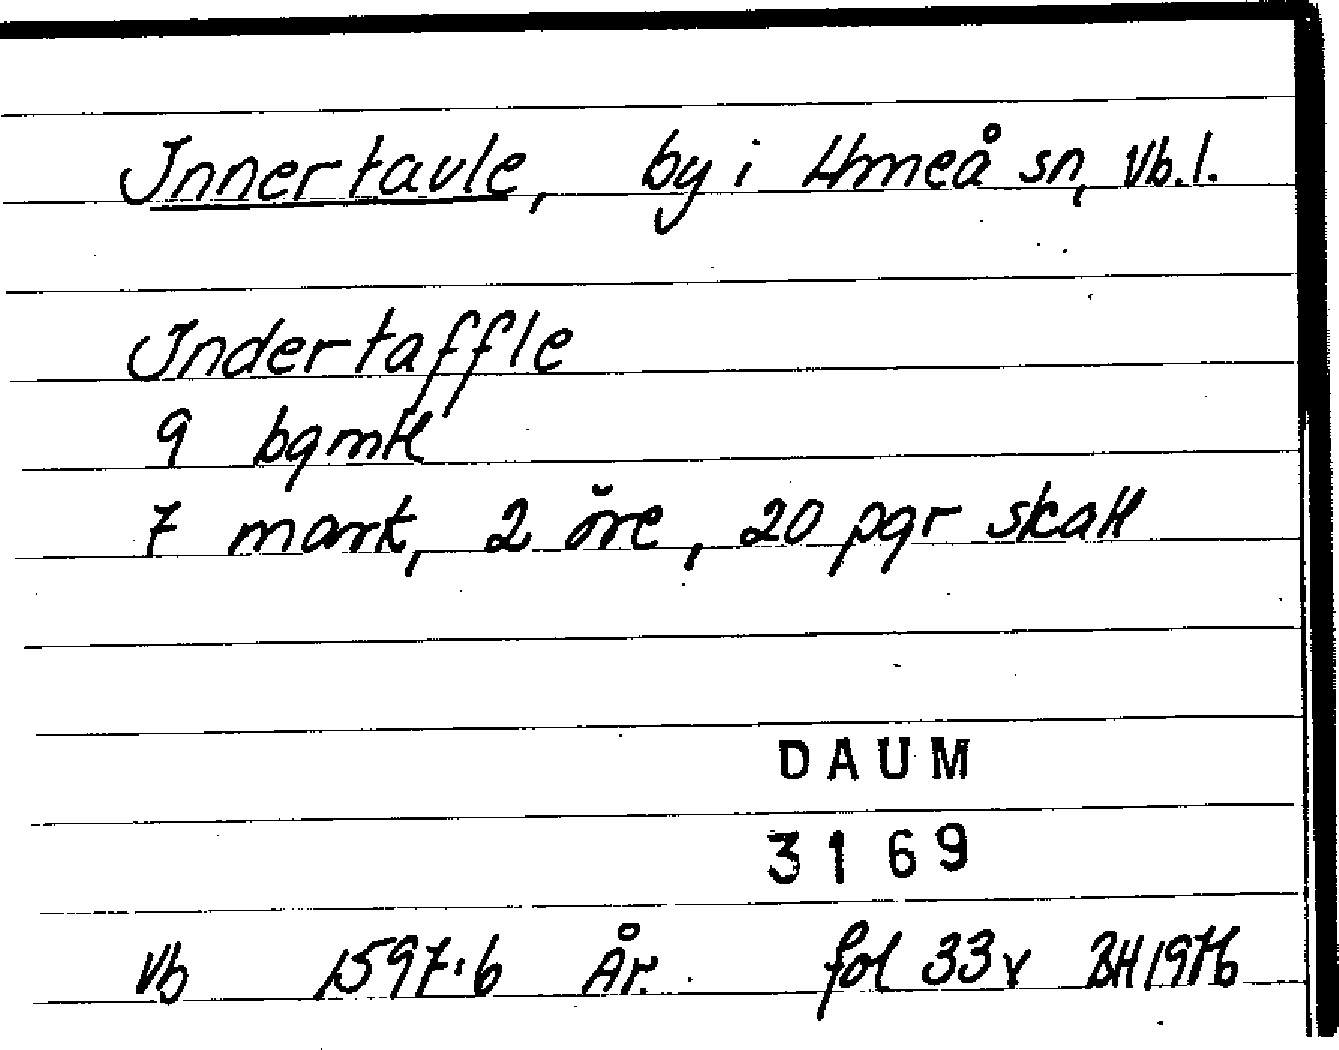 Innertavle, by i Umeå sn, Vb.l.
Indertaffle
9 bgmk
7 mark, 2 öre, 20 pgr skatt
DAUM
3169
Vb 1597:6 År. fol 33v BH 1976